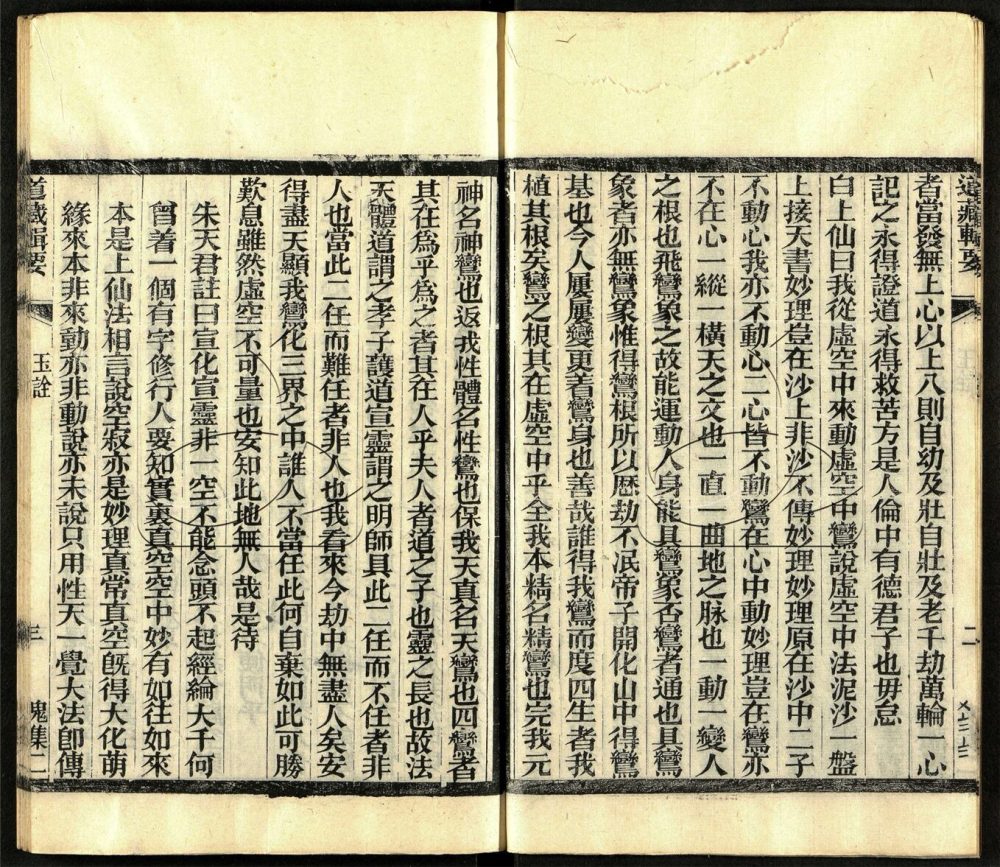 道藏輯要
二
者當發無上心以上八則自幼及壯自壯及老千劫萬輪一心
記之永得證道永得救苦方是人倫中有德君子也毋怠
白上仙曰我從虛空中來動虛空中鸞說虛空中法泥沙一盤
上接天書妙理豈在沙上非沙不傳妙理妙理原在沙中二子
不動心我亦不動心二心皆不動鸞在心中動妙理豈在鸞亦
不在心一縱一橫天之文也一直一曲地之脉也一動一變人
之根也飛鸞象之故能運動人身能具鸞象否鸞者通也具鸞
象者亦無鸞象惟得鸞根所以歷劫不泯帝子開化山中得鸞
基也今人屢屢變更着鸞身也善哉誰得我鸞而度四生者我
植其根矣鸞之根其在虛空中乎全我本精名精鸞也完我元
神名神鸞也返我性體名性鸞也保我天真名天鸞也四鸞者
其在爲乎爲之者其在人乎夫人者道之子也靈之長也故法
天體道謂之孝子護道宣靈謂之明師具此二任而不任者非
人也當此二任而難任者非人也我看來今劫中無盡人矣安
得盡天顯我鸞化三界之中誰人不當任此何自棄如此可勝
歎息雖然虛空不可量也安知此地無人哉是待
朱天君註曰宣化宣靈非一空不能念頭不起經綸大千何
曾着一個有字修行人要知實裏真空空中妙有如往如來
本是上仙法相言說空寂亦是妙理真常真空旣得大化萌
緣來本非來動亦非動說亦未說只用性天一覺大法卽傳
道藏輯要
玉詮
三
鬼集二